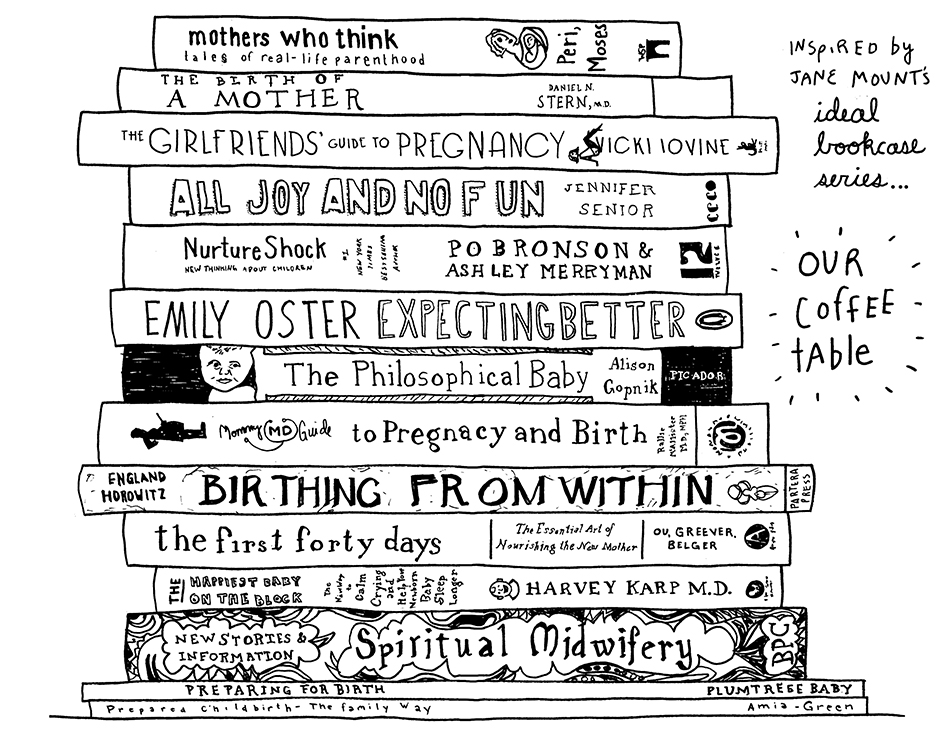 mothers who think
tales of real-life parenthood
Peri,
Moses
WSP
THE BIRTH OF
A MOTHER
DANIEL N.
STERN, M.D.
THE GIRLFRIENDS' GUIDE TO PREGNANCY VICKI IOVINE
ALL JOY AND NO FUN
JENNIFER
SENIOR
ecco
NurtureShock
NEW THINKING ABOUT CHILDREN
#1
NEW YORK
TIMES
BESTSELLING
AUTHOR
PO BRONSON &
ASHLEY MERRYMAN
12
TWELVE
EMILY OSTER EXPECTING BETTER
The Philosophical Baby
Alison
Gopnik
PICADOR
Mommy MD Guide to Pregnacy and Birth
Rallie
McAllister
M.D., MPH
ENGLAND
HOROWITZ
BIRTHING FROM WITHIN
PARTERA
PRESS
the first forty days
The Essential Art of
Nourishing the New Mother
OU, GREEVER,
BELGER
THE
HAPPIEST BABY
ON THE BLOCK
The
New Way
to
Calm
Crying
and
Help Your
Newborn
Baby
Sleep
Longer
HARVEY KARP M.D.
NEW STORIES &
INFORMATION
Spiritual Midwifery
BPC
PREPARING FOR BIRTH
PLUMTREEE BABY
Prepared Childbirth - The family Way
Amia - Green
INSPIRED by
JANE MOUNT'S
ideal
bookcase
series...
OUR
COFFEE
tAble